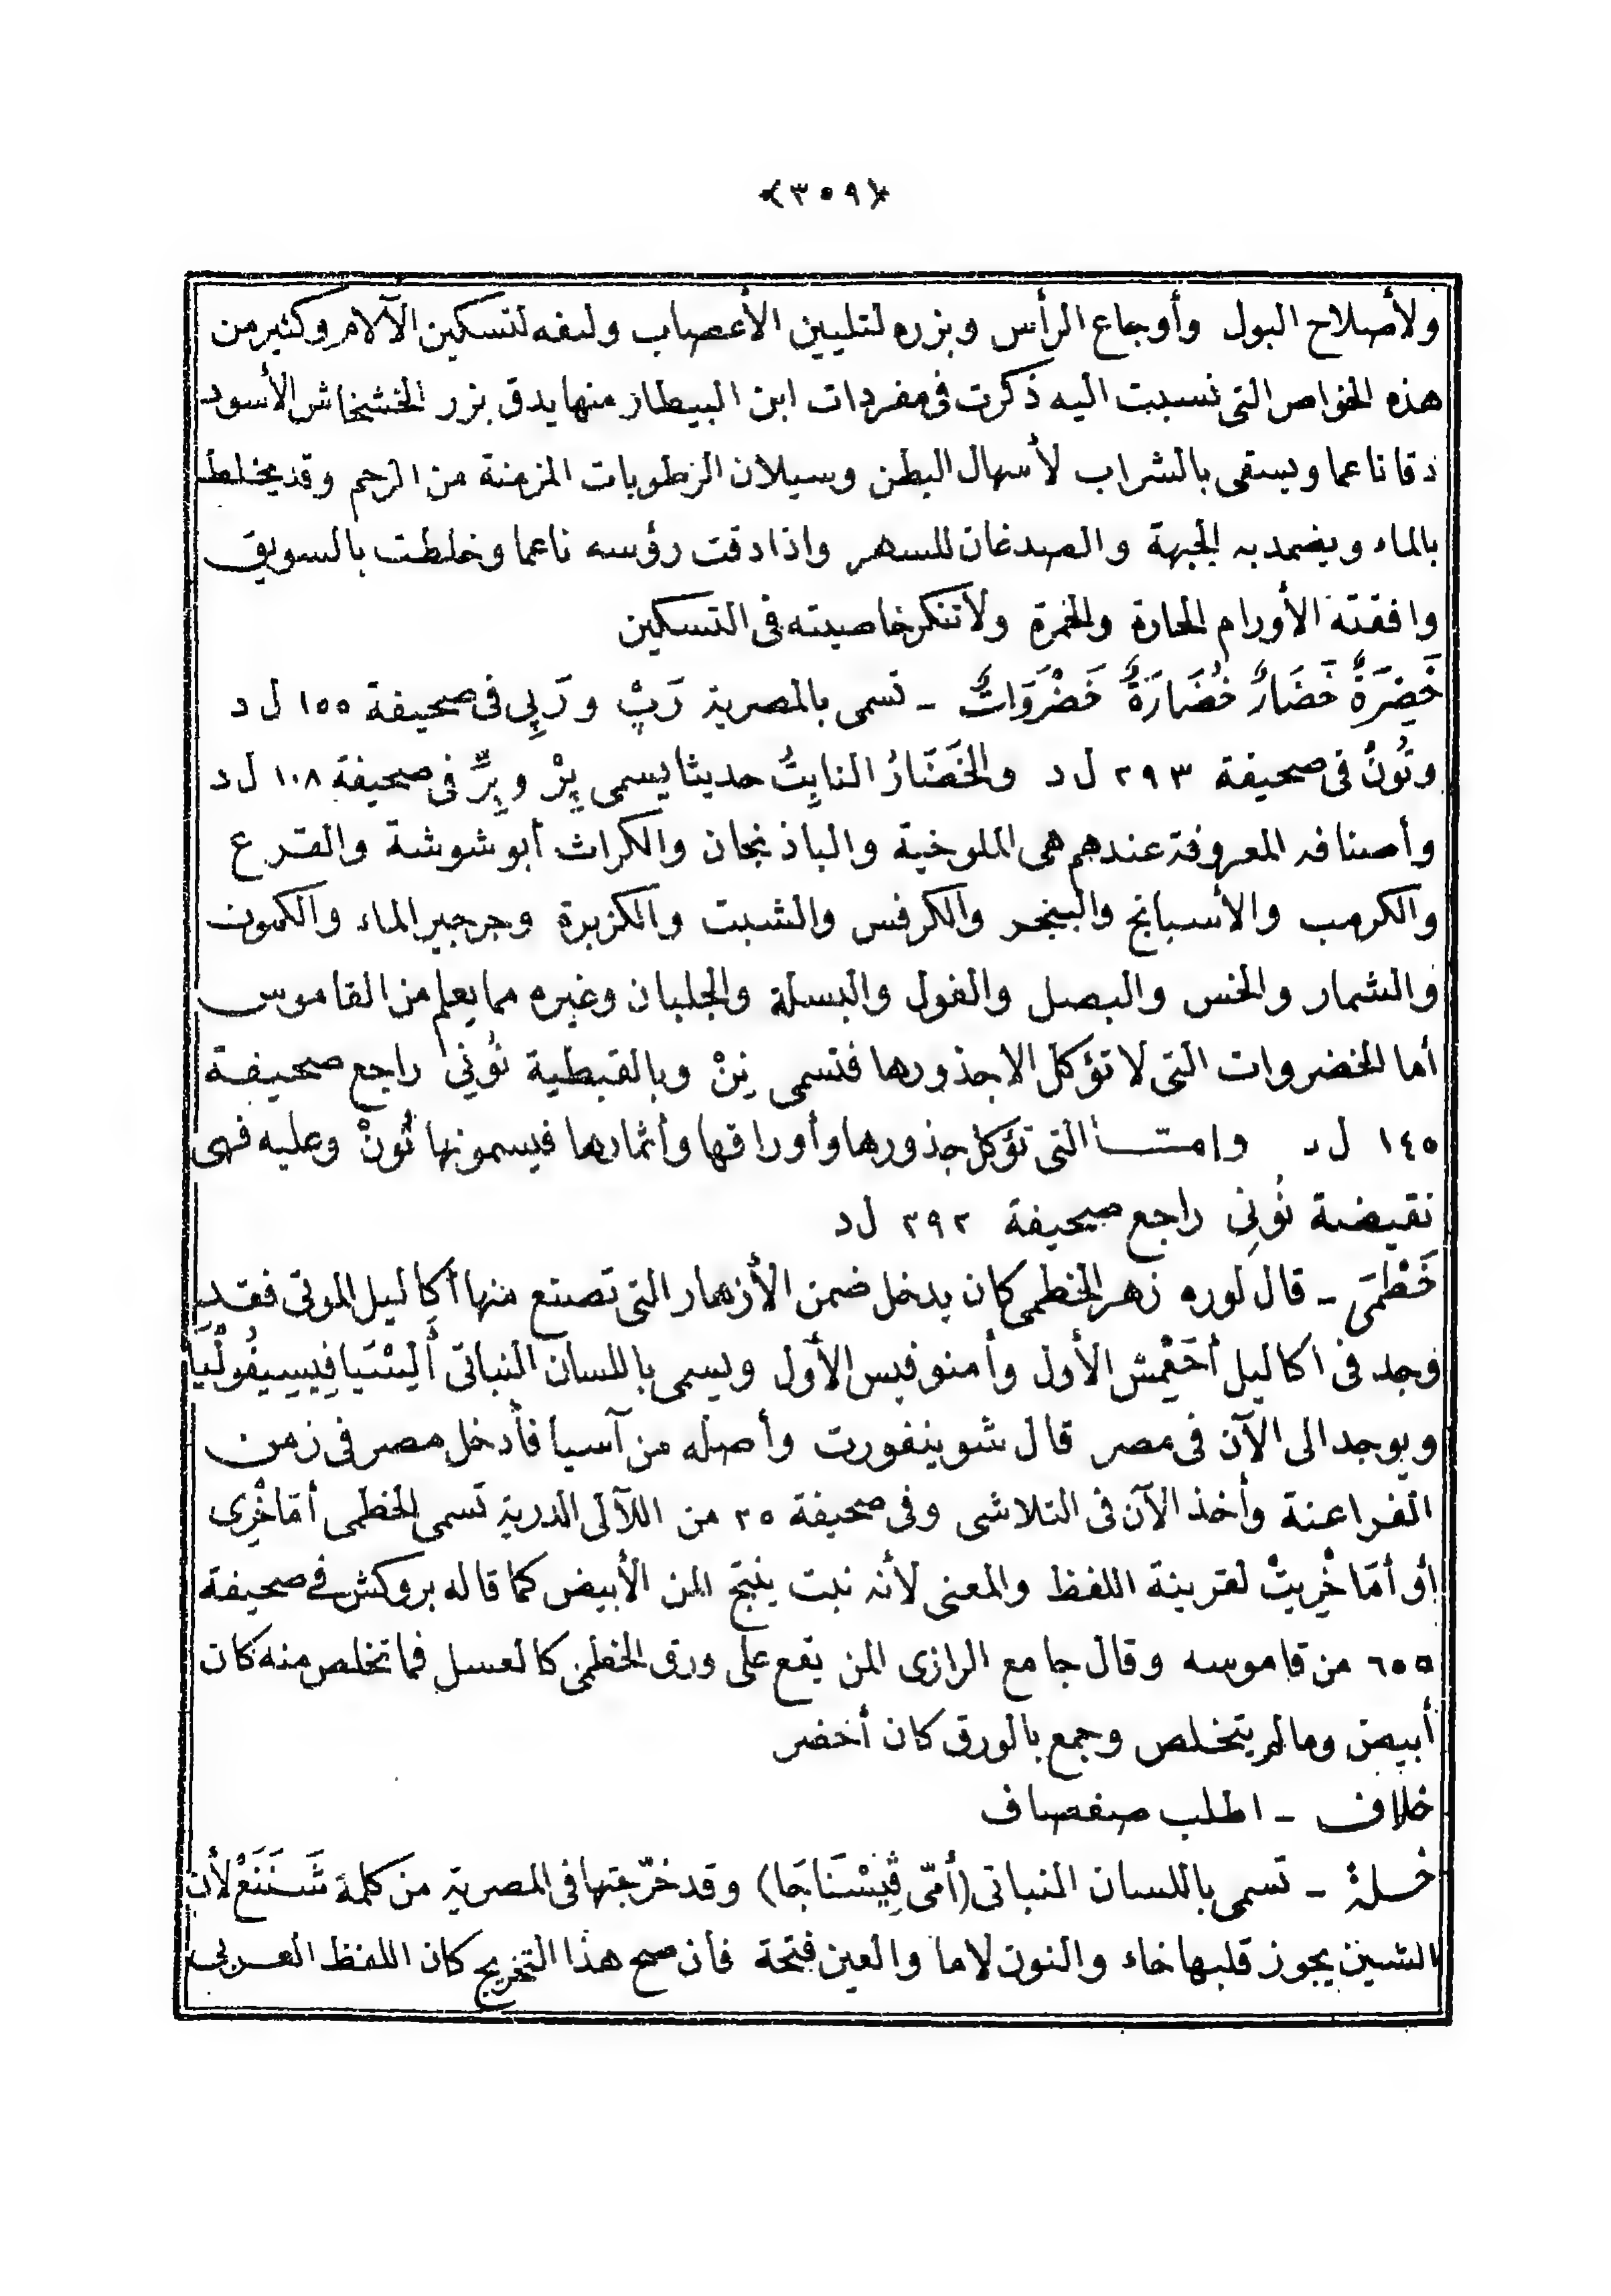 ﴿٣٥٩﴾
ولأصلاح البول وأوجاع الرأس وبزره لتليين الأعصاب ولبفه لتسكين الآلام وكثير من
هذه الخواص التى نسبت اليه ذكرت فى مفردات ابن البيطار منها يدق بزر الخشخاش الأسود
دقا ناعما ويسقى بالشراب لأسهال البطن وسيلان الرطوبات المزمنة من الرحم وقد يخلط
بالماء ويضمد به الجبهة والصدغان للسهر واذا دقت رؤسه ناعما وخلطت بالسويق
وافقته الأورام الحارة والخمرة ولا تنكر خاصيته فى التسكين
خَضِرَةٌ خَضَارٌ خُضَارَةٌ خَضْرَوَاتٌ - تسمى بالمصرية رَبْ ورَبِى فى صحيفة ١٥٥ ل د
وتُونْ فى صحيفة ٢٩٣ ل د والخَضَارُ النابِتُ حديثا يسمى بِرْ وبِرِّ فى صحيفة ١٠٨ ل د
وأصنافه المعروفة عندهم هى الملوخية والباذنجان والكراث أبو شوشة والقرع
والكرمب والأسبانخ والبنجر والكرفس والشبت والكزبرة وجرجير الماء والكمون
والشمار والخس والبصل والفول والبسلة والجلبان وغيره مما يعلم من القاموس
أما الخضروات التى لا تؤكل الا جذورها فتسمى نِنْ وبالقبطية نُونِى راجع صحيفة
١٤٥ ل د وإمتا التى تؤكل جذورها وأوراقها وأثمارها فيسمونها تُونْ وعليه فهى
نقيضة نُونِى راجع صحيفة ٢٩٢ ل د
خَطْمَى - قال لوره زهر الخطمى كان يدخل ضمن الأزهار التى تصنع منها أكاليل الموتى فقد
وجد فى اكاليل أَحَعْمِس الأول وأمنوفيس الأول ويسمى باللسان النباتى أَلِسْيَا فِيسِيفُولْيَا
ويوجد الى الآن فى مصر قال شوينفورت وأصله من آسيا فأدخل مصر فى زمن
الفراعنة وأخذ الآن فى التلاشى وفى صحيفة ٢٥ من اللآلى الدرية تسمى الخطمى أمَاخْرِى
أو أمَاخْرِيتْ لقرينة اللفظ والمعنى لأنه نبت ينتج المن الأبيض كما قاله بروكش فى صحيفة
٦٥٥ من قاموسه وقال جامع الرازى المن يقع على ورق الخطمى كالعسل فما تخلص منه كان
أبيض ومالم يتخلص وجمع بالورق كان أخضر
خلاف - اطلب صفصاف
خلة - تسمى باللسان النباتى (أمّى ڤِيسْنَاجَا) وقد خرّجتها فى المصرية من كلمة شَنَنَعْ لأن
الشين يجوز قلبها خاء والنون لاما والعين فتحة فان صح هذا التخريج كان اللفظ العربى